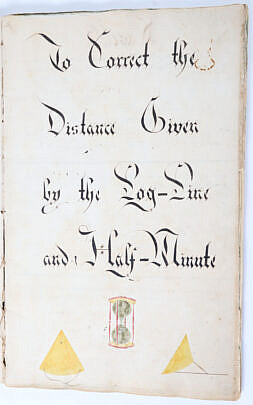 To Correct the
Distance Given
by the Log-Line
and Half-Minute